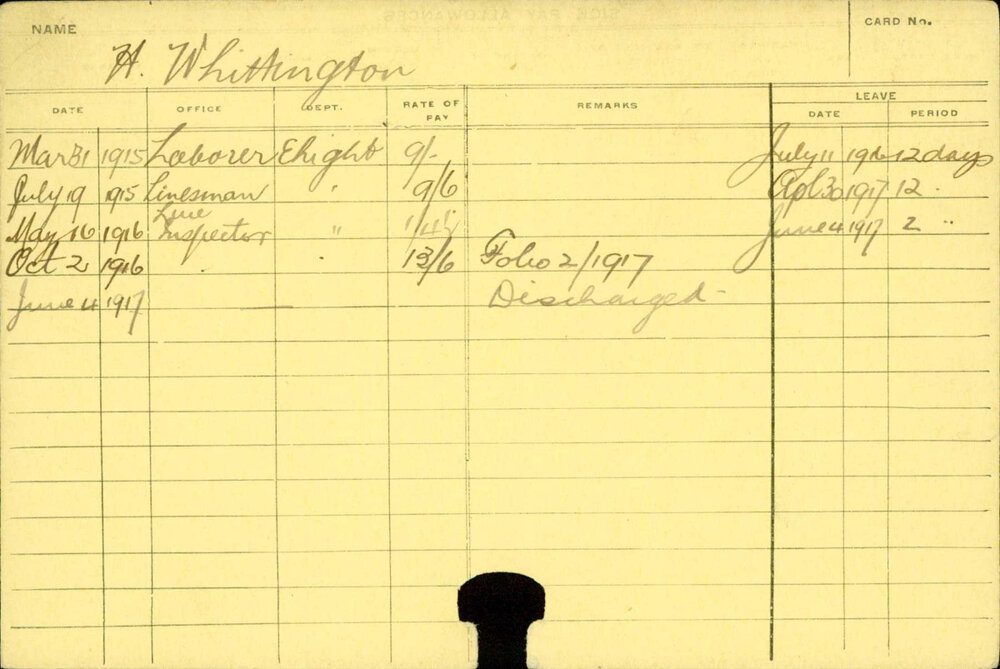 NAME
H. Whittington
CARD No.
DATE OFFICE DEPT. RATE OF PAY REMARKS LEAVE DATE PERIOD
Mar 31 1915 Laborer Elight 9/- July 11 1916 12 days
July 19 1915 Linesman " 9/6 Apl 30 1917 12 "
May 16 1916 Line Inspector " June 4 1917 2 "
Oct 2 1916 " " 13/6 Folio 2/1917
June 4 1917 — Discharged